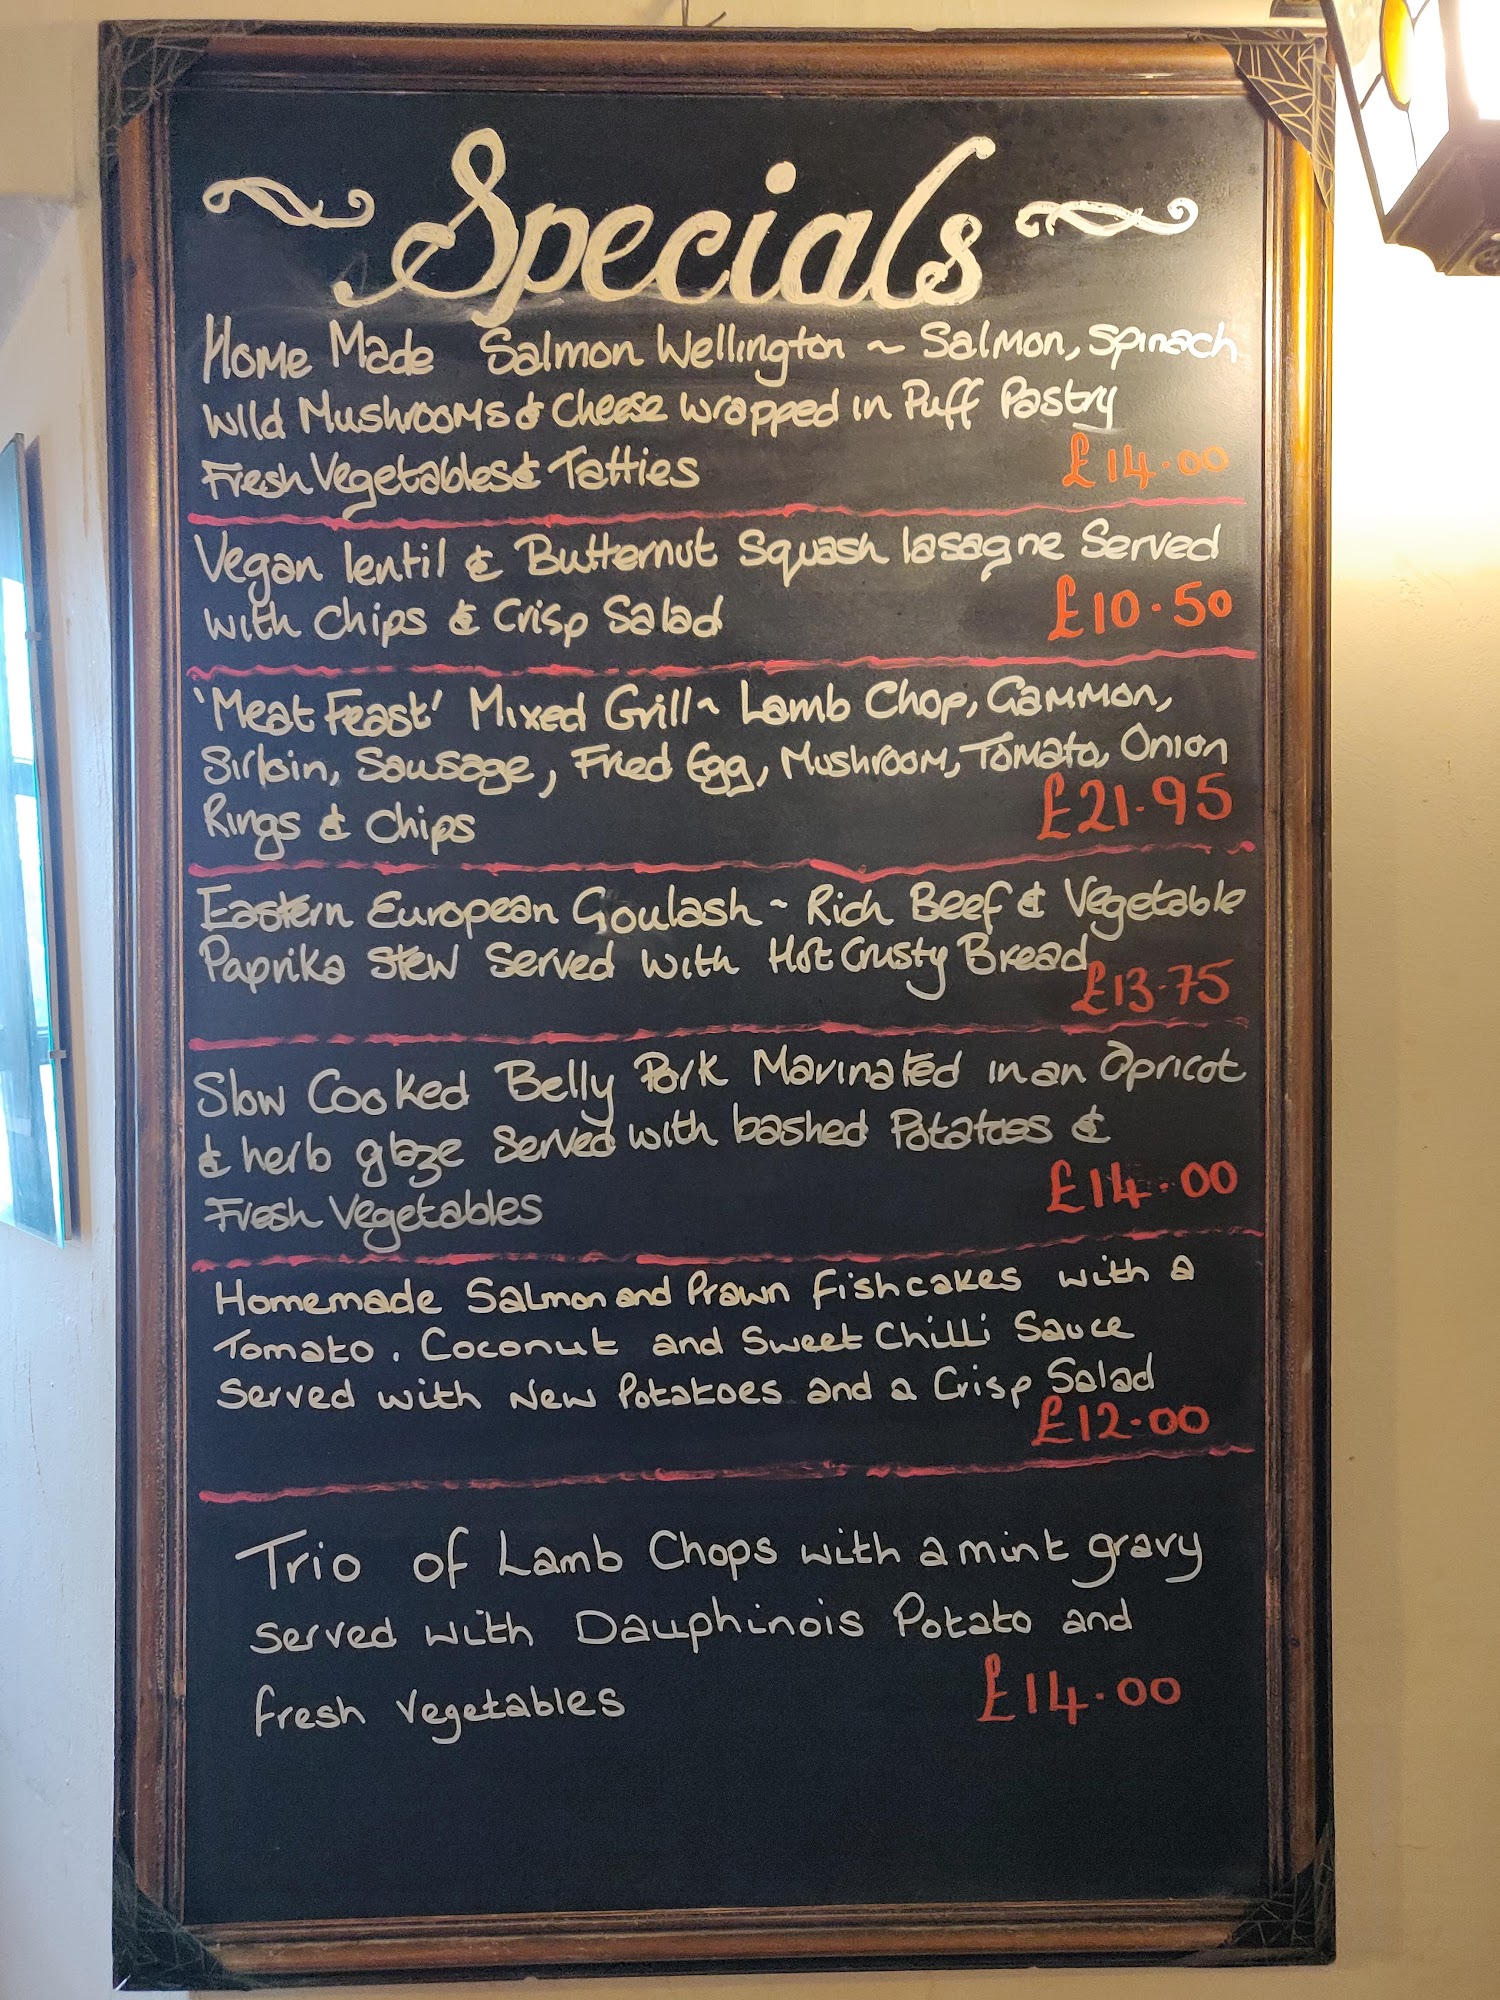 Specials
Home Made Salmon Wellington ~ Salmon, Spinach
Wild Mushrooms & Cheese wrapped in Puff Pastry
Fresh Vegetables & Tatties £14.00
Vegan lentil & Butternut Squash lasagne Served
with Chips & Crisp Salad £10.50
'Meat Feast' Mixed Grill ~ Lamb Chop, Gammon,
Sirloin, Sausage, Fried Egg, Mushroom, Tomato, Onion
Rings & Chips £21.95
Eastern European Goulash ~ Rich Beef & Vegetable
Paprika Stew Served with Hot Crusty Bread
£13.75
Slow Cooked Belly Pork Marinated in an Apricot
& herb glaze Served with bashed Potatoes &
Fresh Vegetables £14.00
Homemade Salmon and Prawn Fishcakes with a
Tomato, Coconut and Sweet Chilli Sauce
Served with New Potatoes and a Crisp Salad
£12.00
Trio of Lamb Chops with a mint gravy
served with Dauphinois Potato and
fresh vegetables £14.00